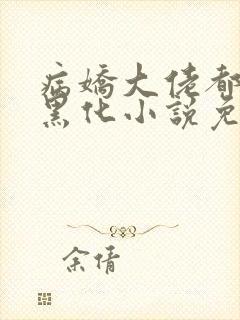 病娇大佬都
黑化小說免
余倩